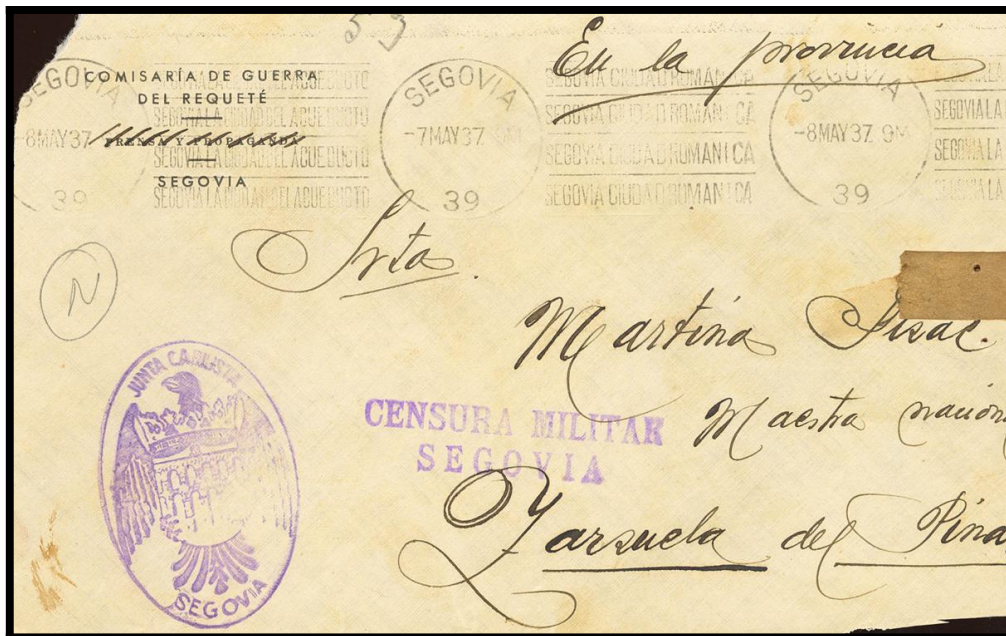 53
En la provincia
COMISARÍA DE GUERRA
DEL REQUETÉ
PRENSA Y PROPAGANDA
SEGOVIA
SEGOVIA
-8MAY37
39
SEGOVIA LA CIUDAD DEL ACUEDUCTO
SEGOVIA LA CIUDAD DEL ACUEDUCTO
SEGOVIA LA CIUDAD DEL ACUEDUCTO
SEGOVIA LA CIUDAD DEL ACUEDUCTO
SEGOVIA
-7MAY37
39
SEGOVIA CIUDAD ROMÁNICA
SEGOVIA CIUDAD ROMANICA
SEGOVIA CIUDAD ROMANICA
SEGOVIA CIUDAD ROMANICA
SEGOVIA
-8MAY37 9M
39
SEGOVIA LA
SEGOVIA LA
SEGOVIA LA
SEGOVIA LA
N
Srta.
Martina Pisac.
Maestra nacion
Zarzuela del Pina
JUNTA CARLISTA
SEGOVIA
CENSURA MILITAR
SEGOVIA